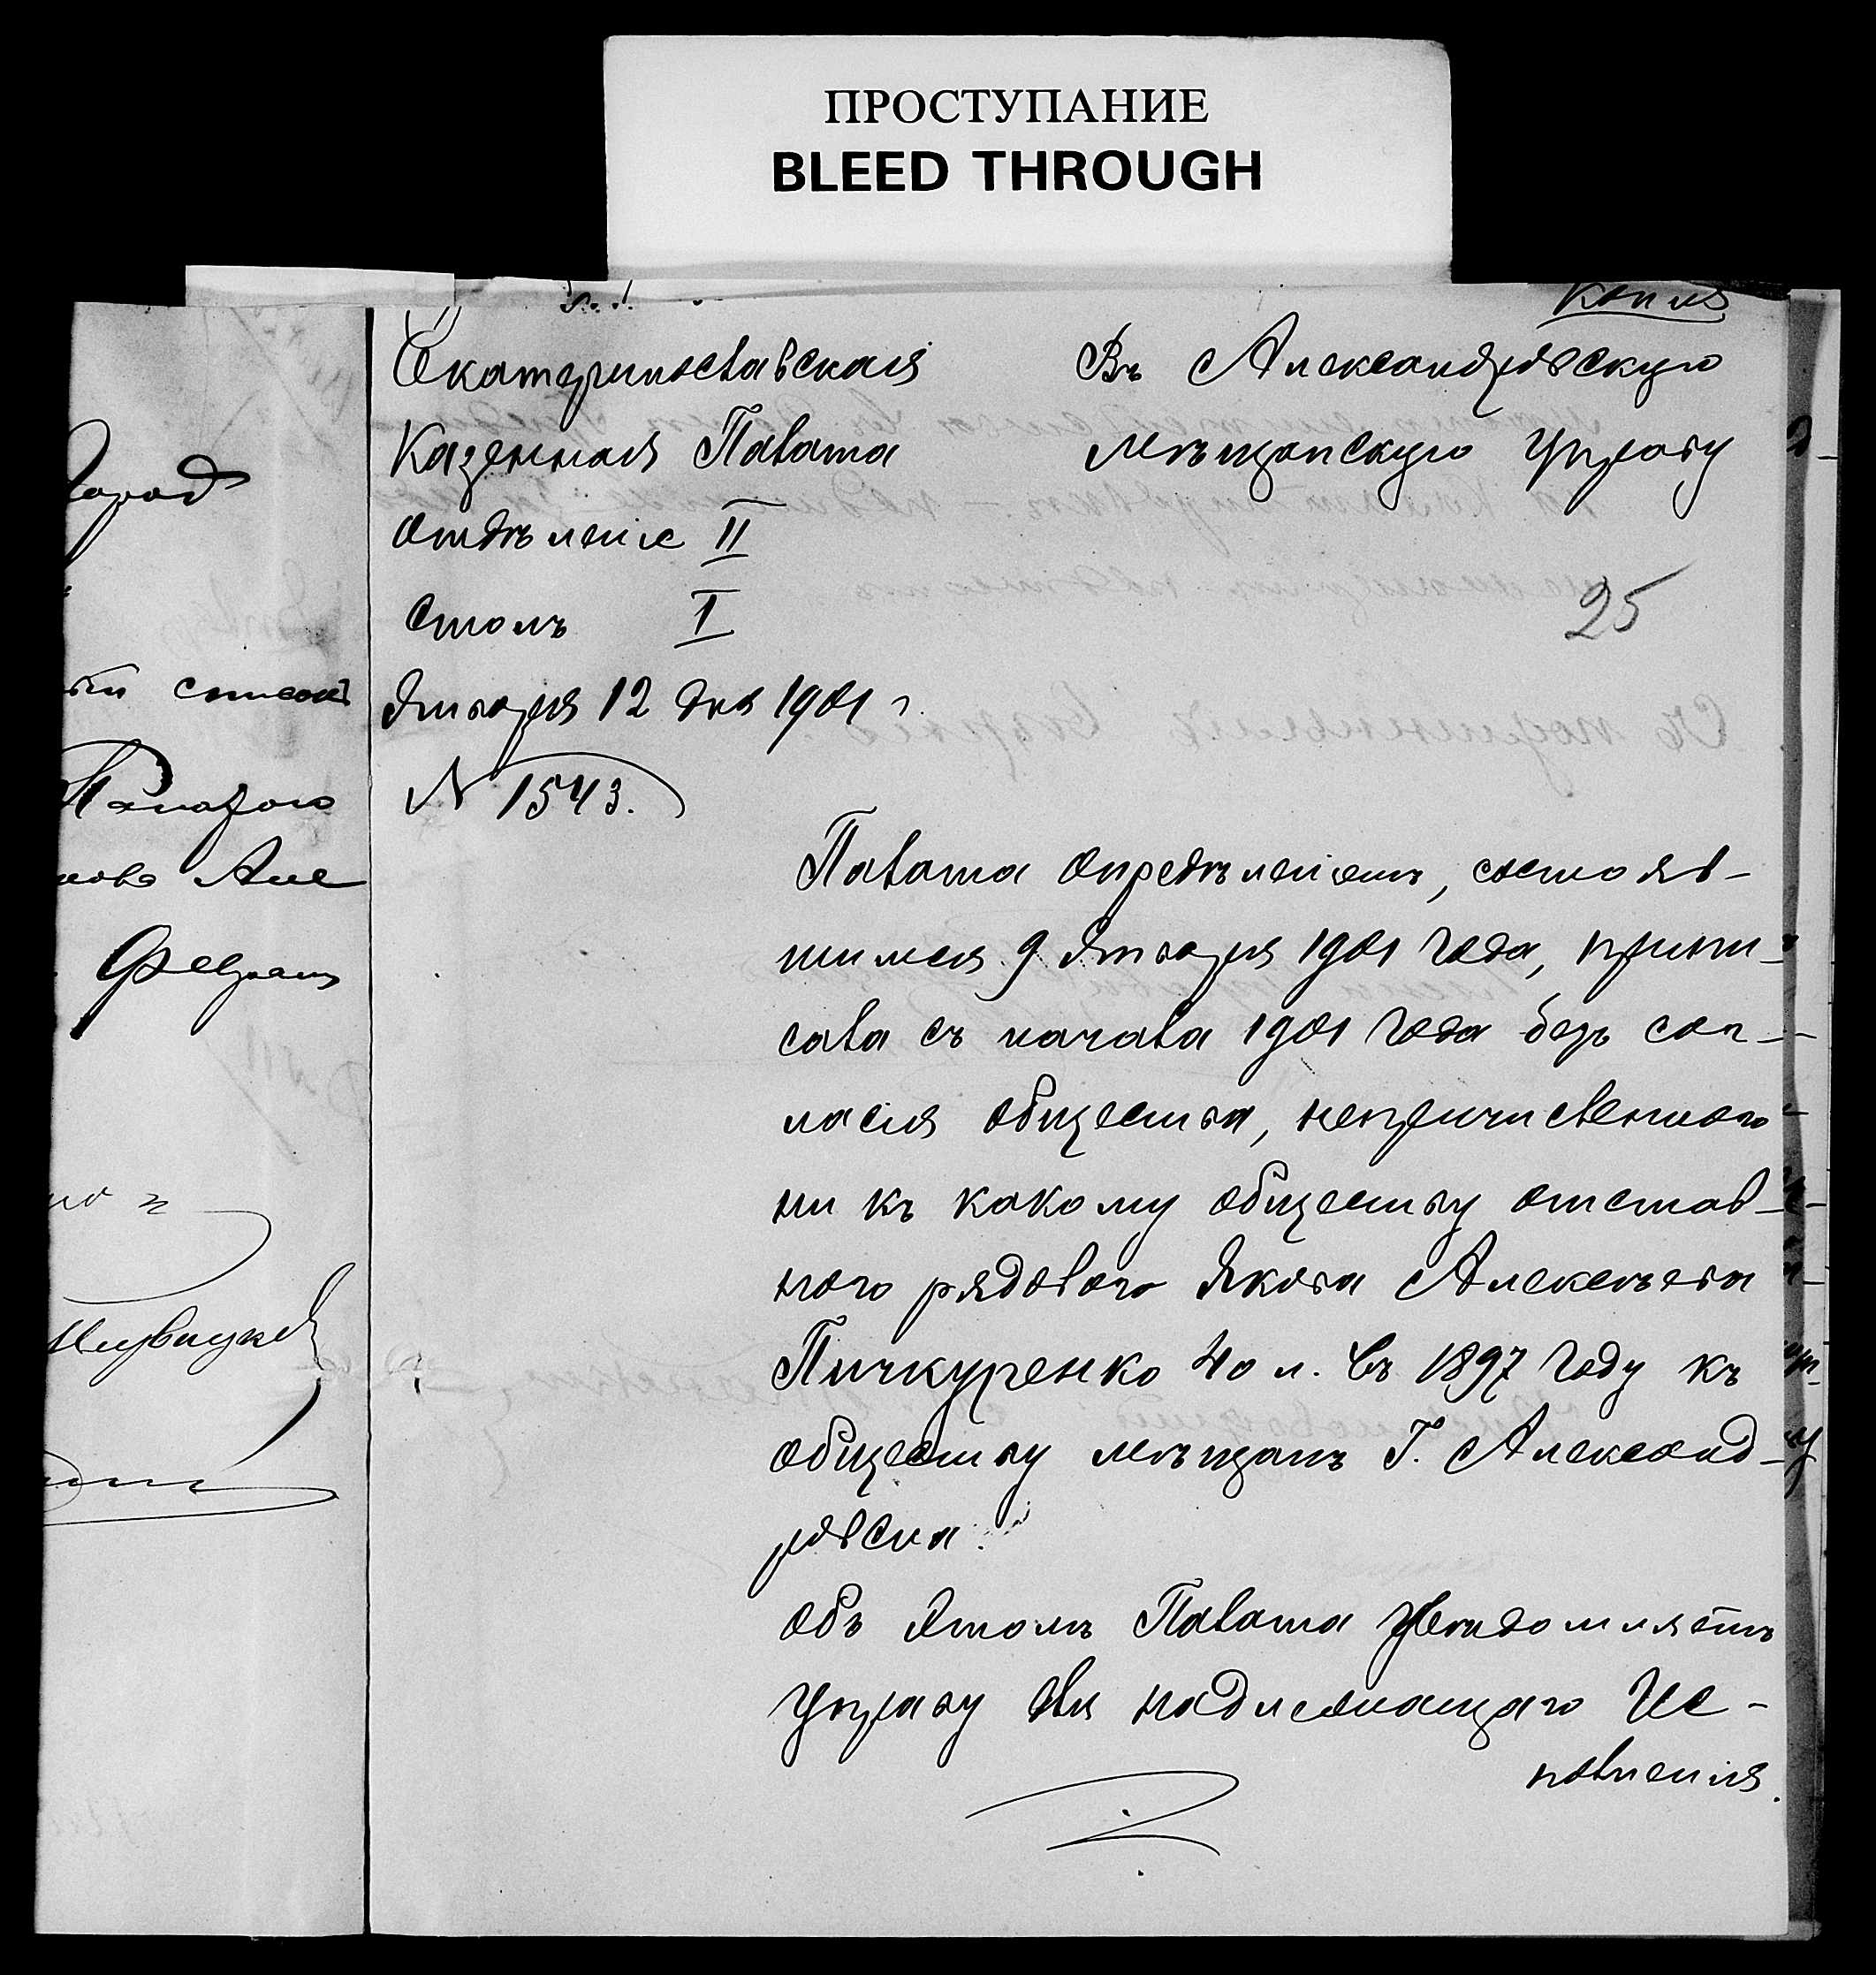 ПРОСТУПАНИЕ
BLEED THROUGH
Копія
Екатеринославская
Казенная Палата
Отдѣленіе II
Столъ I
Января 12 дня 1901 г.
N 1543.
Въ Александровскую
мѣщанскую управу
25
Палата опредѣленіемъ, состояв-
шимся 9 Января 1901 года, припи-
сала съ начала 1901 года безъ сог-
ласія общества, непричисленного
ни къ какому обществу отстав-
ного рядового Якова Алексѣева
Пичкуренко 40 л. въ 1897 году къ
обществу мѣщанъ Г. Александ-
ровска.
Объ этомъ Палата увѣдомляетъ
управу для надлежащаго Ис-
полненія.
Город
список
Але
Феврал